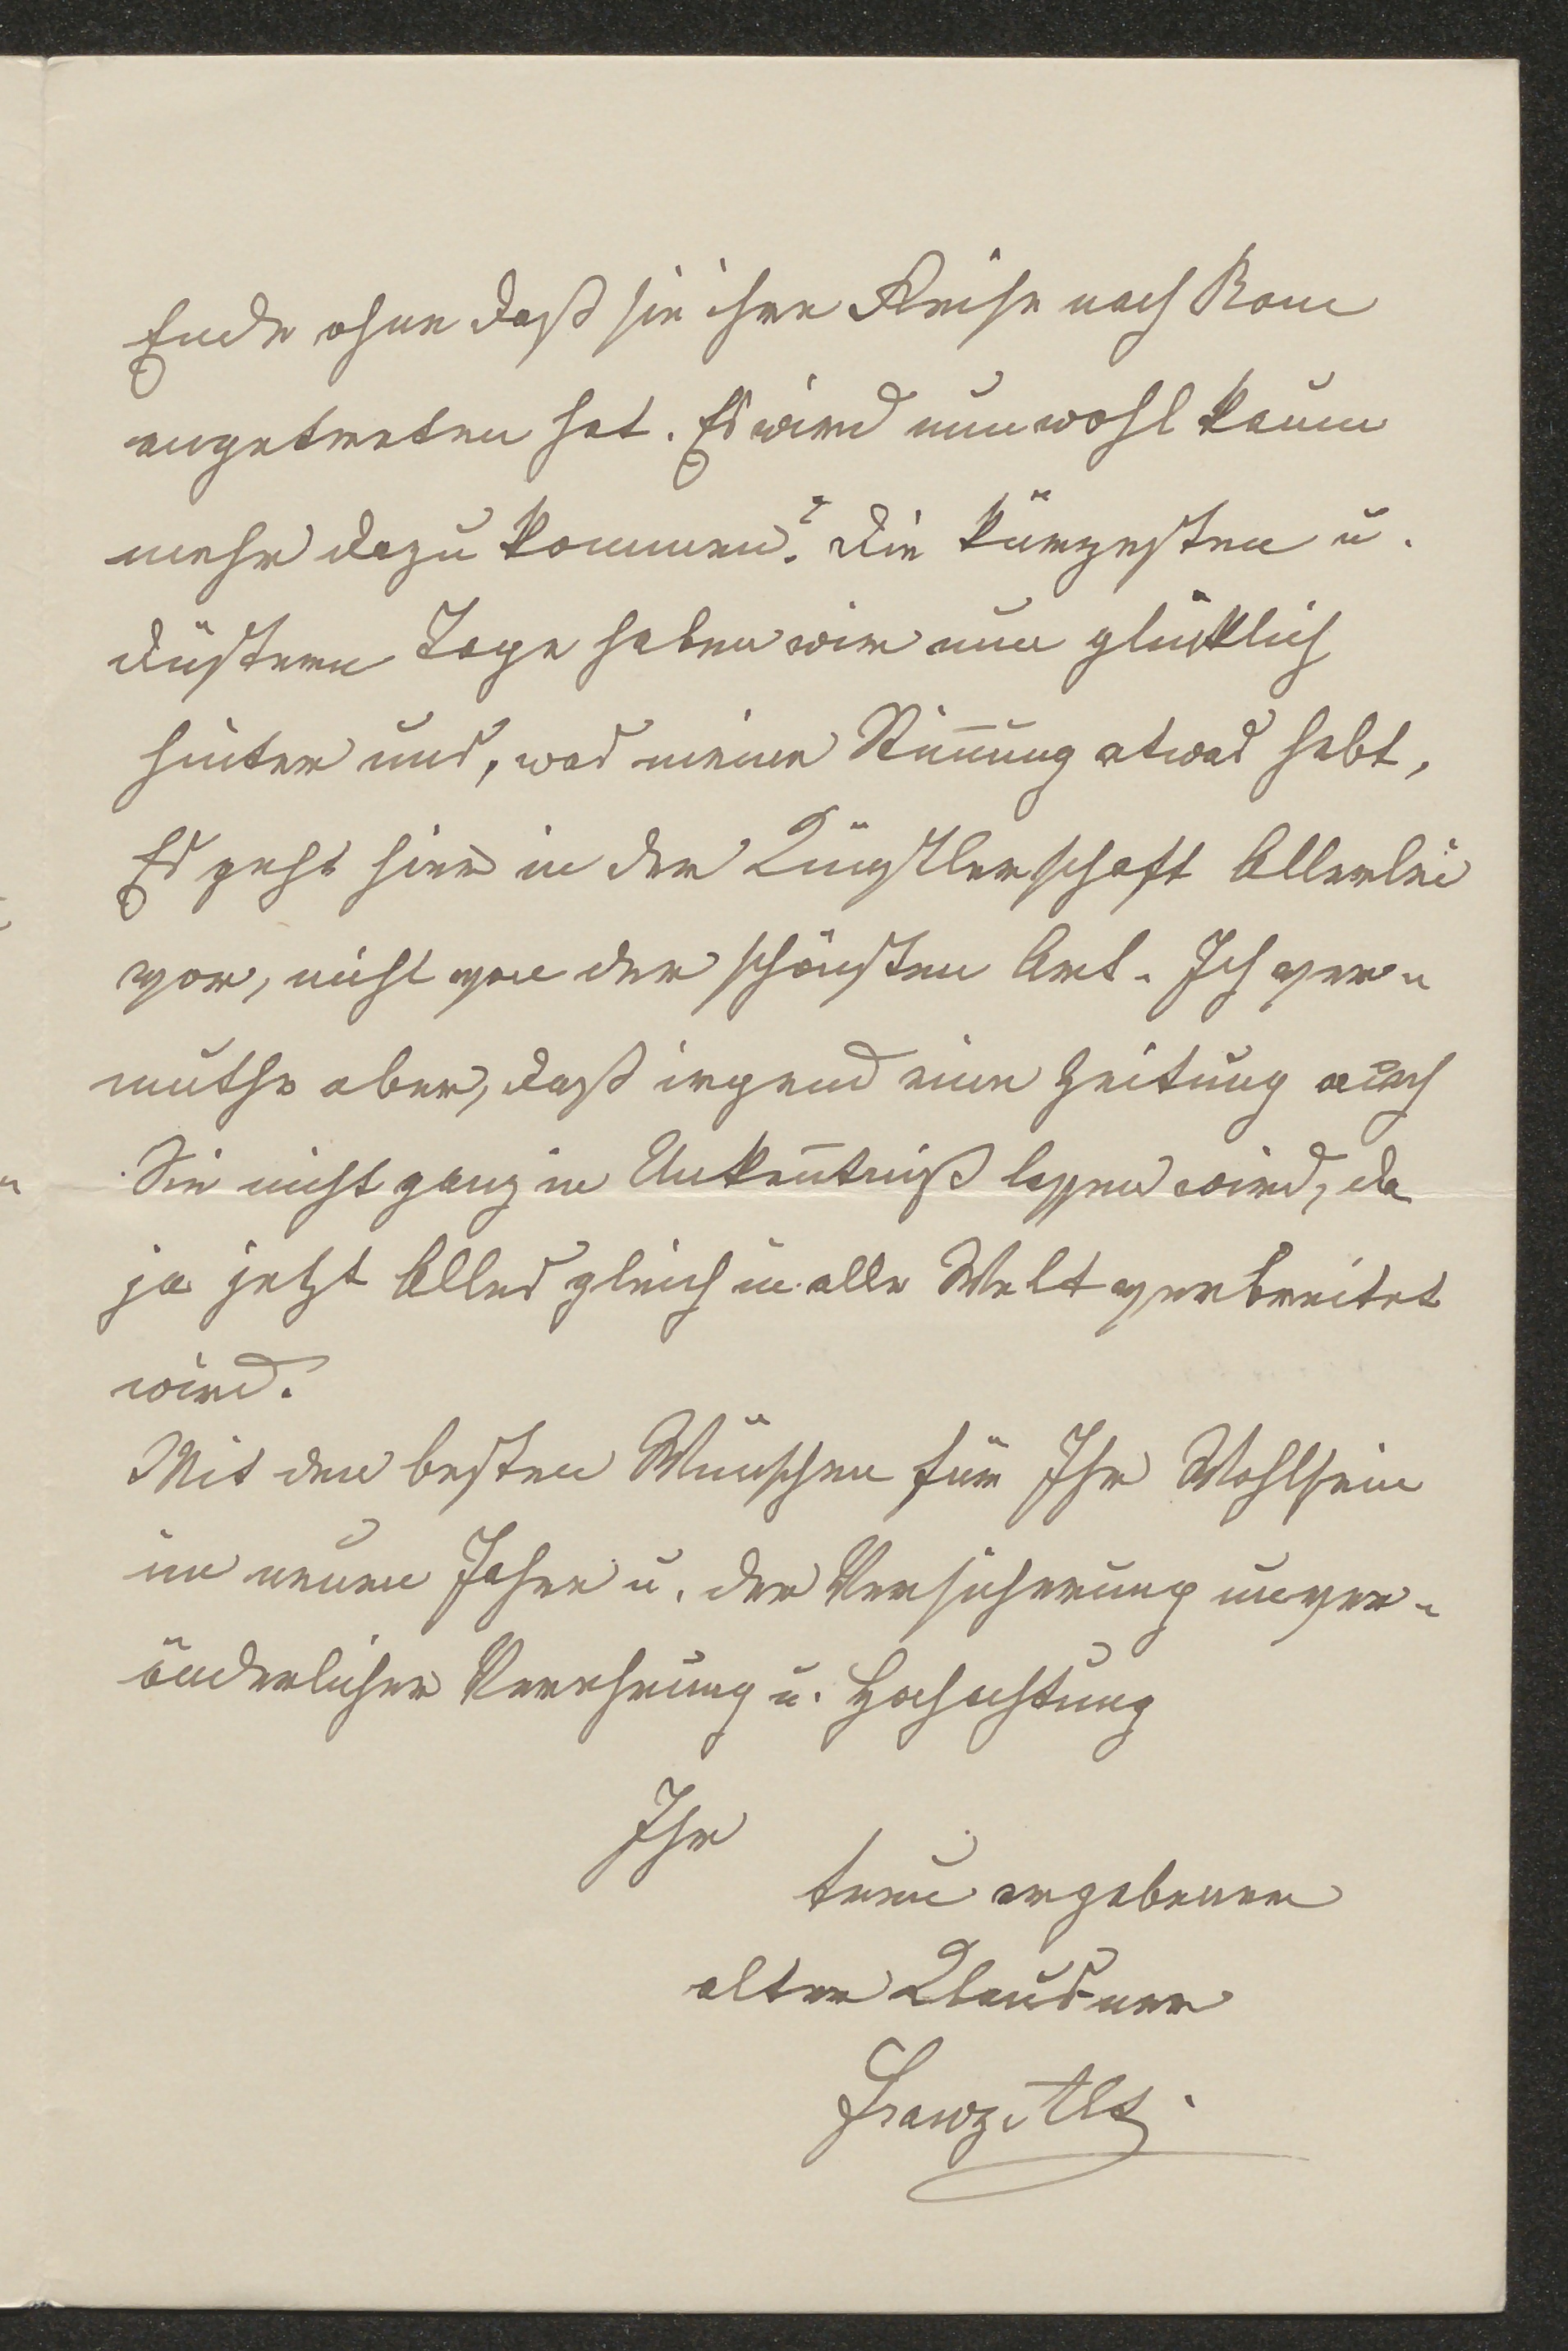 Ende ohne daß sie ihre Reise nach Rom
angetreten hat. Es wird nun wohl kaum
mehr dazu kommen? Die kürzesten u.
düstern Tage haben wir nun glücklich
hinter uns, was meine Stim̅ung etwas hebt,
Es geht hier in der Künstlerschaft Allerlei
vor, nicht von der schönsten Art. Ich ver-
muthe aber, daß irgend eine Zeitung auch
Sie nicht ganz in Unken̅tniß lassen wird, da
ja jetzt Alles gleich in alle Welt verbreitet
wird.
Mit den besten Wünschen für Ihr Wohlsein
im neuen Jahre u. der Versicherung unver-
änderlicher Verehrung u. Hochachtung
Ihr
treu ergebener
alter Klausner
Franz Alt.